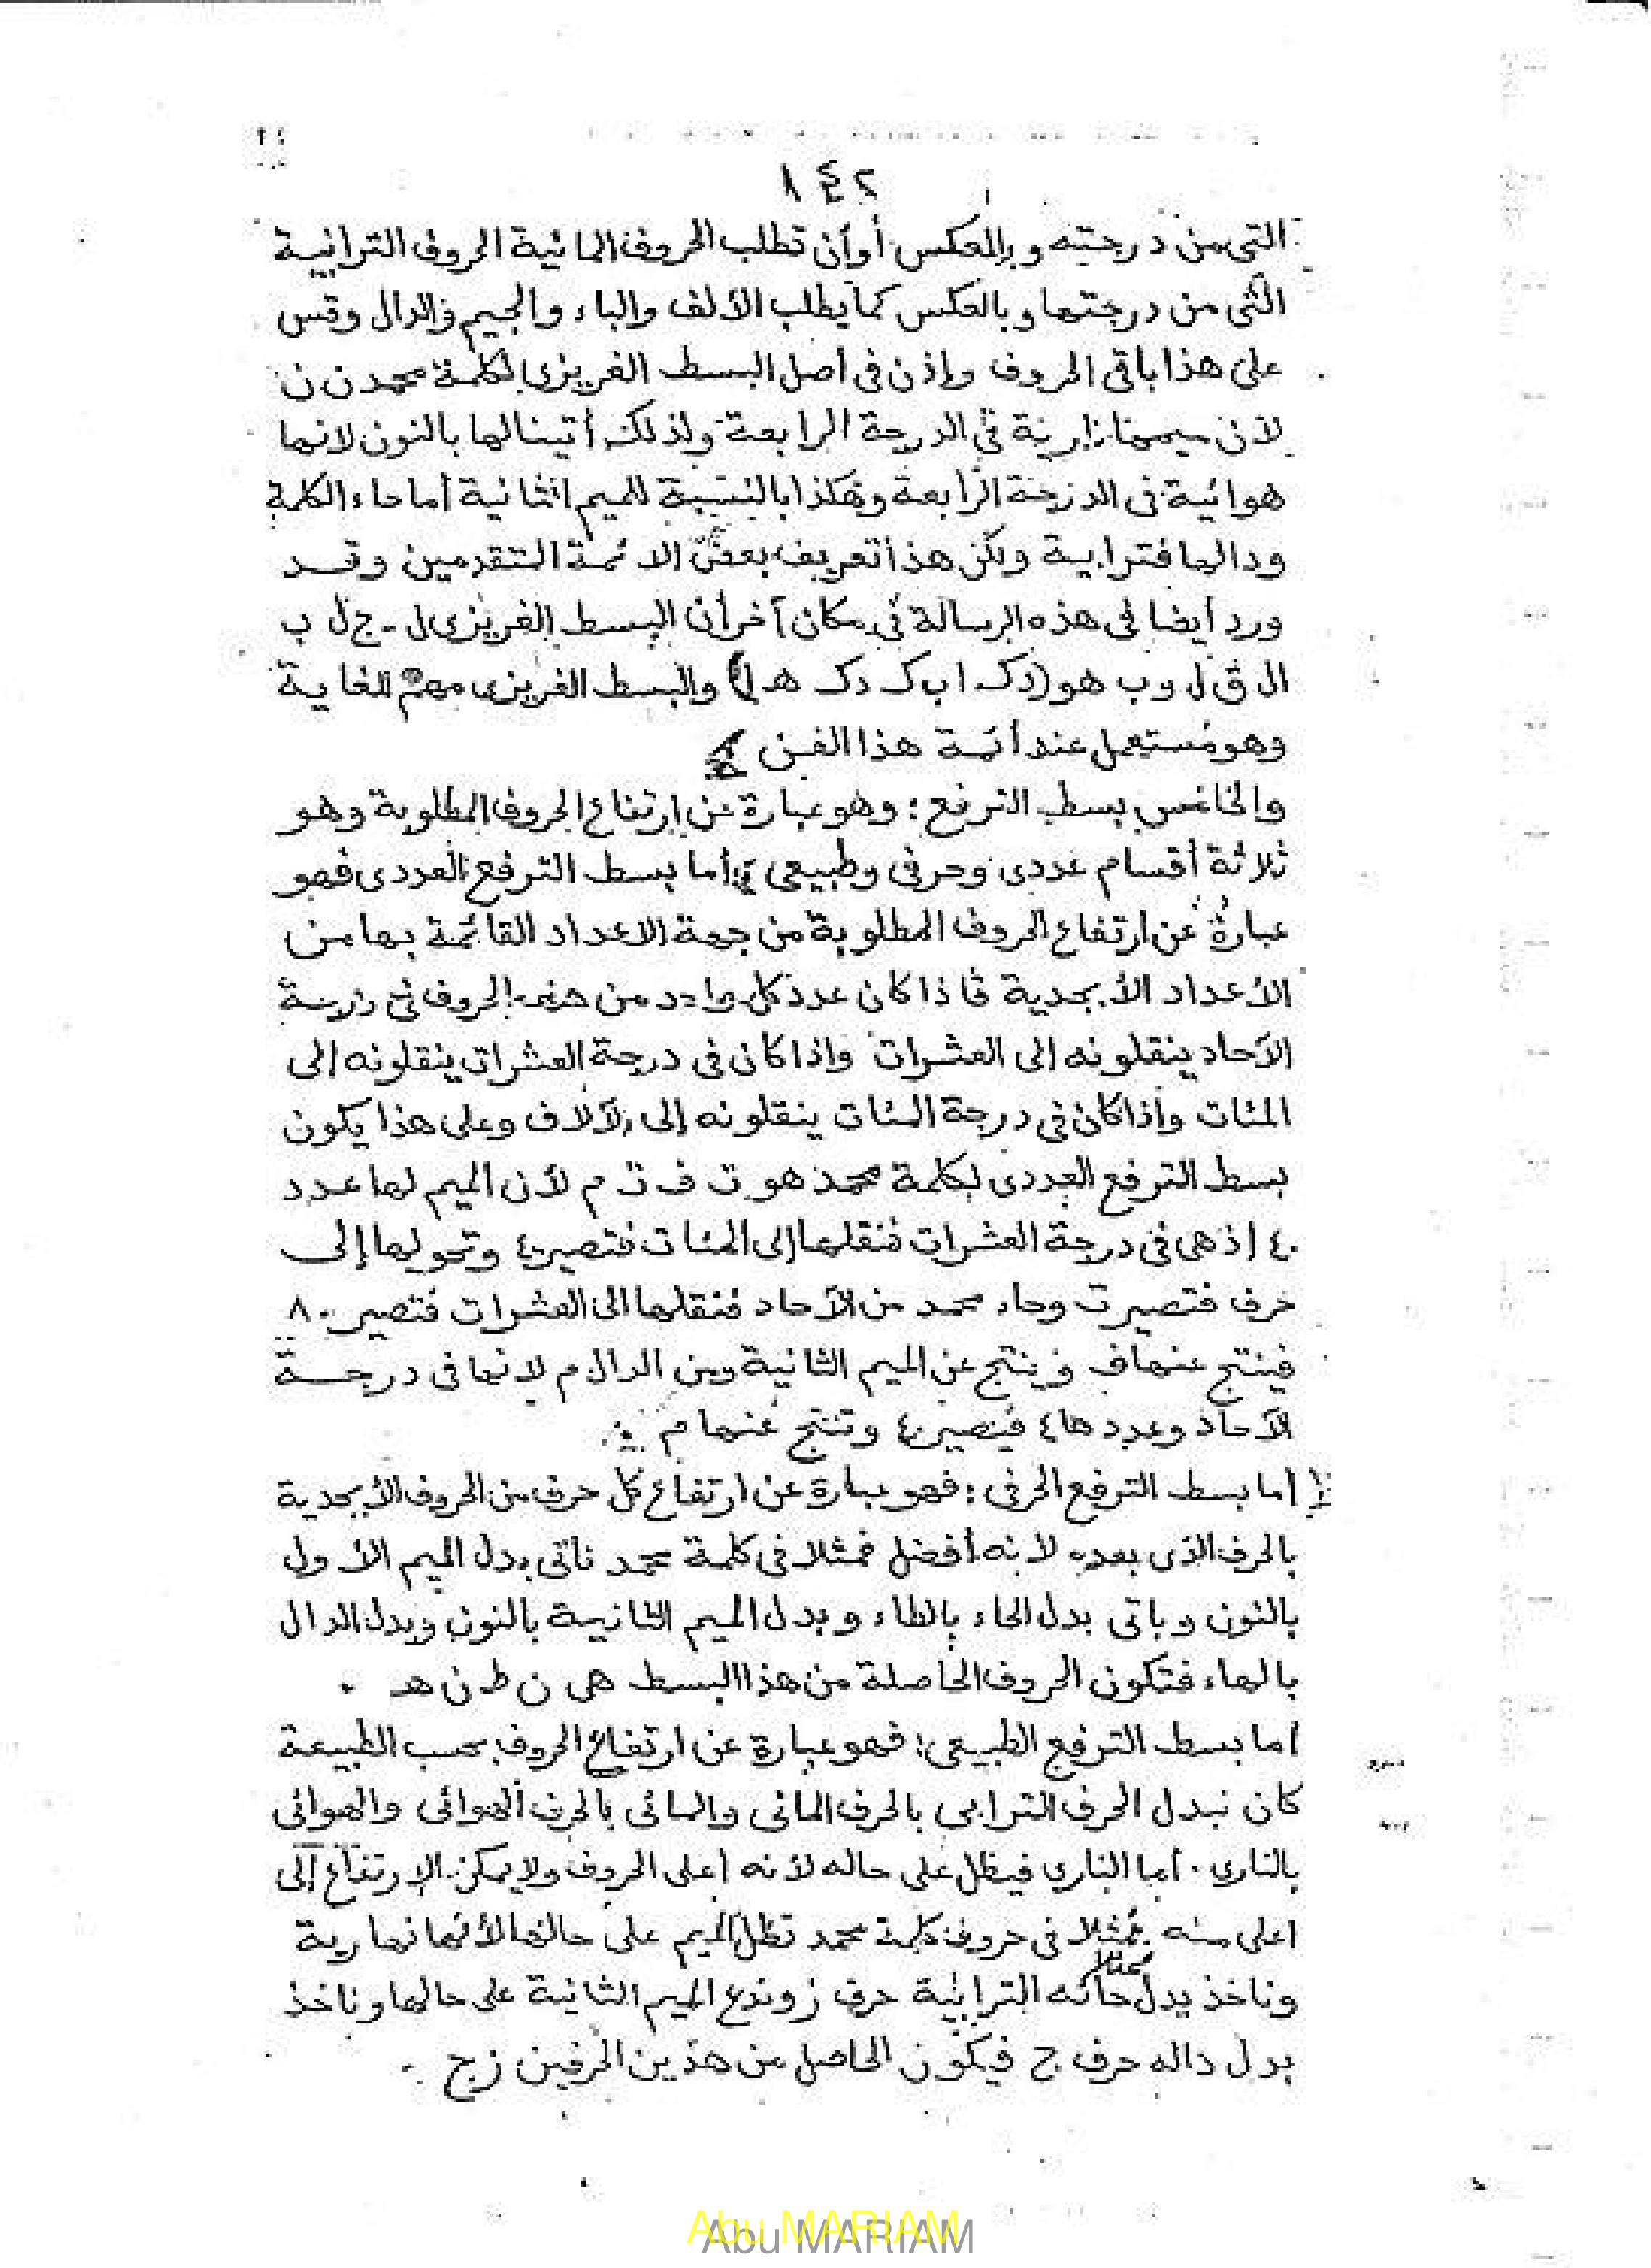 ١٤٢
التى من درجته وبالعكس أو أن تطلب الحروف المائية الحروف الترابية
التى من درجتها وبالعكس كما يطلب الألف والباء والجيم والدال وقس
على هذا باقى الحروف وإذن فى أصل البسط الغريزى لكلمة محمد ن ن
لأن ميمها نارية فى الدرجة الرابعة ولذلك أتينا لها بالنون لانها
هوائية فى الدرجة الرابعة وهكذا بالنسبة للميم الثانية أما حاء الكلمة
ودالها فترابية ولكن هذا تعريف بعض الائمة المتقدمين وقد
ورد أيضا فى هذه الرسالة فى مكان آخر أن البسط الغريزى ل - ج ل ب
ال ق ل وب هو (د ك ا ب ك د ك هـ ا) والبسط الغريزى مهم للغاية
وهو مستعمل عند أئمة هذا الفن
والخامس بسط الترفع : وهو عبارة عن ارتفاع الحروف المطلوبة وهو
ثلاثة أقسام عددى وحرفى وطبيعى ؛ أما بسط الترفع العددى فهو
عبارة عن ارتفاع الحروف المطلوبة من جهة الاعداد القائمة بها من
الأعداد الأبجدية فاذا كان عدد كل واحد من هذه الحروف فى درجة
الآحاد ينقلونه إلى العشرات واذا كان فى درجة العشرات ينقلونه إلى
المئات وإذا كان فى درجة المئات ينقلونه إلى الآلاف وعلى هذا يكون
بسط الترفع العددى لكلمة محمد هو ت ف ت م لأن الميم لها عدد
٤٠ إذ هى فى درجة العشرات فنقلها إلى المئات فتصير ٤٠ وتحولها إلى
حرف فتصير ت وحاء محمد من الآحاد فنقلها الى العشرات فتصير ٨٠
فينتج عنها ف وينتج عن الميم الثانية وعن الدال م لانها فى درجة
الآحاد وعددها ٤ فتصير ٤٠ وتنتج عنها م
أما بسط الترفع الحرفى : فهو عبارة عن ارتفاع كل حرف من الحروف الأبجدية
بالحرف الذى بعده لانه أفضل فمثلا فى كلمة محمد ناتى بدل الميم الأول
بالنون وباتى بدل الحاء بالطاء وبدل الميم الثانية بالنون وبدل الدال
بالهاء فتكون الحروف الحاصلة من هذا البسط هى ن ط ن هـ .
أما بسط الترفع الطبيعى : فهو عبارة عن ارتفاع الحروف بحسب الطبيعة
كان نبدل الحرف الترابى بالحرف المائى والمائى بالحرف الهوائى والهوائى
بالنارى . أما النارى فيظل على حاله لأنه أعلى الحروف ولا يمكن الارتفاع إلى
اعلى منه فمثلا فى حروف كلمة محمد تظل الميم على حالها لأنها نارية
وناخذ بدل حائه الترابية حرف ز وندع الميم الثانية على حالها وناخذ
بدل داله حرف ج فيكون الحاصل من هذين الحرفين ز ج .
Abu MARIAM
Abu MARIAM